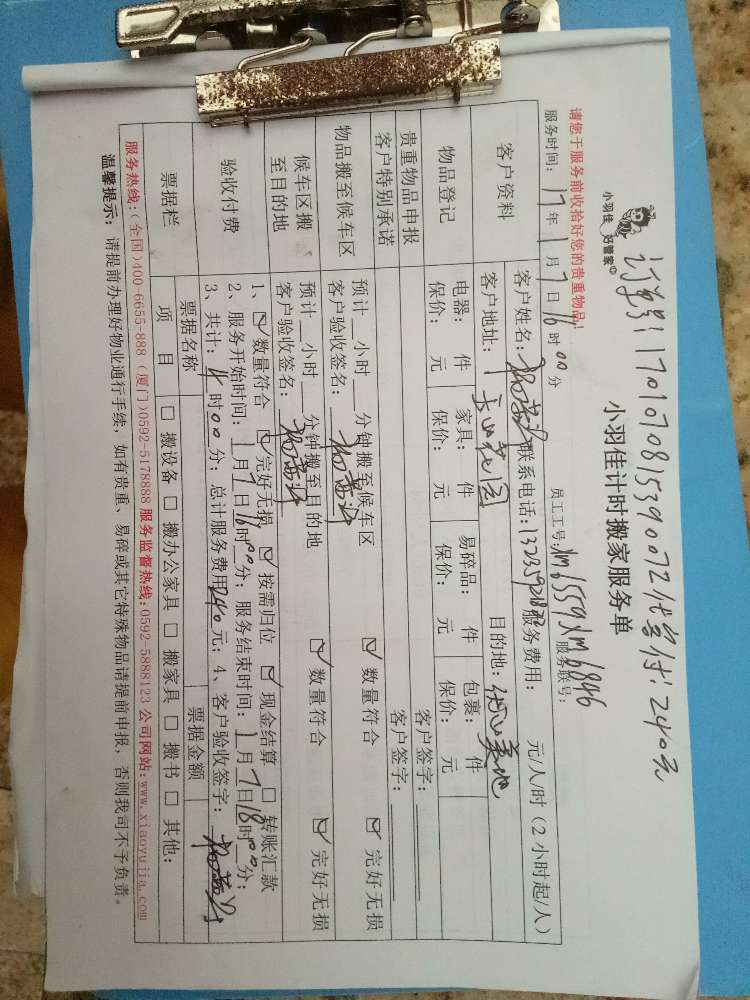 订单号：1701070815390072代客付：240元
小羽佳 好管家
小羽佳计时搬家服务单
请您于服务前收拾好您的贵重物品！
员工工号：xm6559 xm6846 服务联号：
服务时间：17年1月7日16时00分
客户资料 客户姓名： 联系电话： 服务费用： 元/人/时（2小时起/人）
客户地址： 花园 目的地： 美地
物品登记 电器： 件 家具： 件 易碎品： 件 包裹： 件
保价： 元 保价： 元 保价： 元 保价： 元
贵重物品申报 客户签字：
客户特别承诺 客户签字：
物品搬至候车区 预计 小时 分钟搬至候车区 ☑ 数量符合 ☑ 完好无损
客户验收签名：
候车区搬至目的地 预计 小时 分钟搬至目的地 ☑ 数量符合 ☑ 完好无损
客户验收签名：
验收付费 1、☑ 数量符合 ☑ 完好无损 ☑ 按需归位 ☑ 现金结算 □ 转账汇款
2、服务开始时间：1月7日16时00分；服务结束时间：1月7日18时00分；
3、共计：4时00分；总计服务费用240元；4、客户验收签字：
票据栏 票据名称 票据金额
项 目 □ 搬设备 □ 搬办公家具 □ 搬家具 □ 搬书 □ 其他：
服务热线：（全国）400-6655-888（厦门）0592-5178888 服务监督热线：0592-5888123 公司网站：www.xiaoyujia.com
温馨提示：请提前办理好物业通行手续，如有贵重、易碎或其它特殊物品请提前申报，否则我司不予负责。